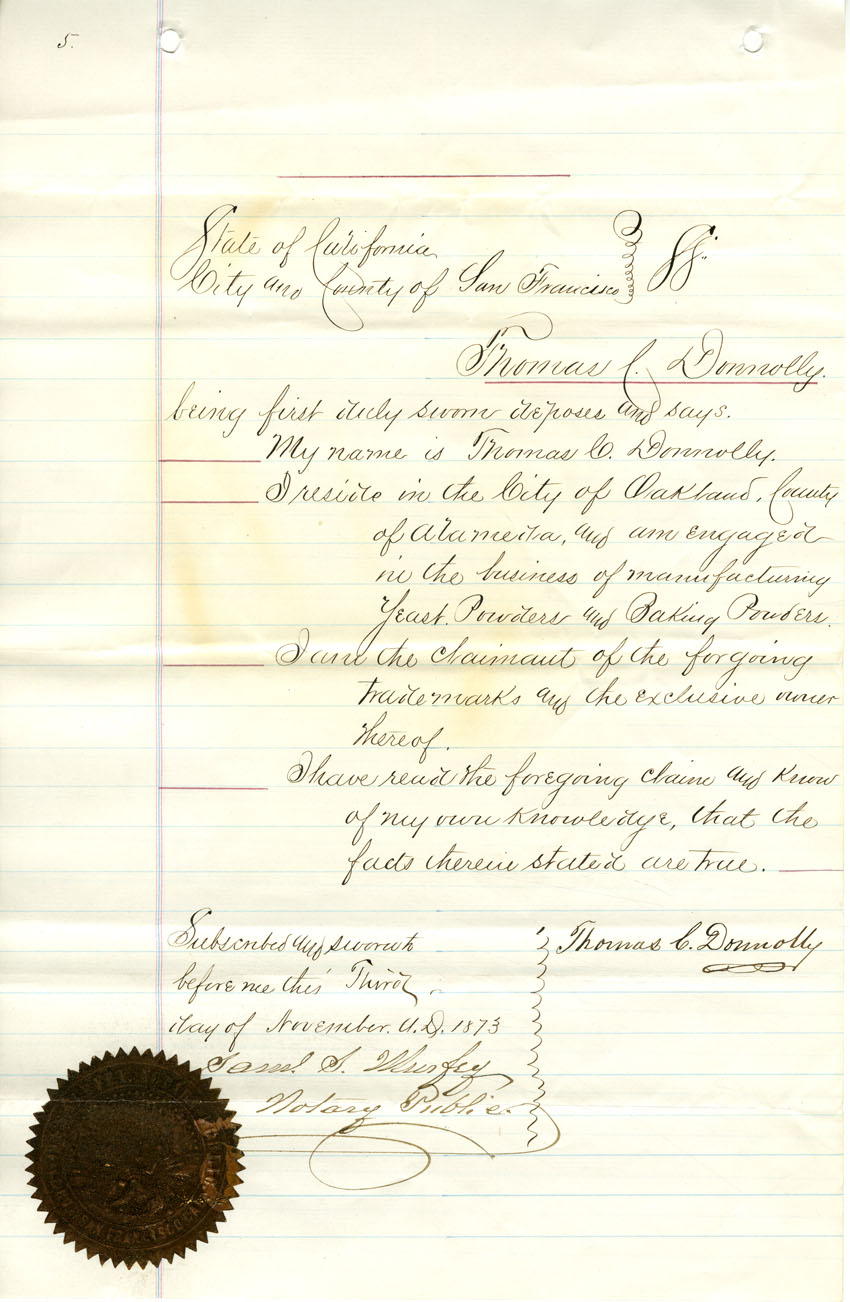 5.
State of California
City and County of San Francisco
SS.
Thomas C. Donnolly.
being first duly sworn deposes and says.
My name is Thomas C. Donnolly.
I reside in the City of Oakland, County
of Alameda, and am engaged
in the business of manufacturing
Yeast Powders and Baking Powders.
I am the claimant of the forgoing
trademarks and the exclusive owner
thereof.
I have read the foregoing claim and know
of my own knowledge, that the
facts therein stated are true.
Subscribed and sworn to
before me this Third
day of November. A.D. 1873
Thomas C. Donnolly
Saml. S. Murfey
Notary Public.